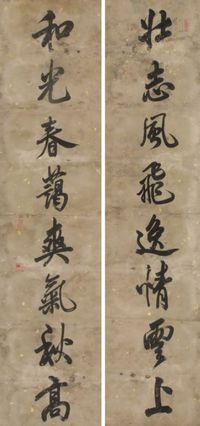 壯志風飛逸情雲上
和光春藹爽氣秋高